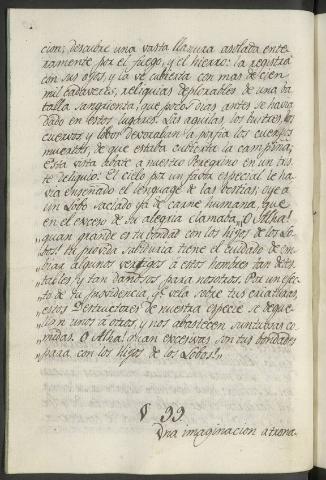 cion; descubre una vasta llanura asolada ente-
ramente por el fuego, y el hierro: la registra
con sus ojos, y la vé cubierta con mas de cien
mil cadaveres, reliquias deplorables de una ba
talla sangrienta, que pocos dias antes se havia
dado en estos lugares. Las aguilas, los buitres, los
cuervos y lobos devoraban a porfia los cuerpos
muertos, de que estaba cubierta la campiña;
Esta vista abate à nuestro Peregrino en un tris
te deliquio: El cielo por un favor especial le ha
via enseñado el lenguage de las bestias; oye a
un Lobo saciado ya de carne humana, que
en el exceso de su alegria clamaba, O Alha!
„quan grande es tu bondad con los hijos de los Lo-
„bos! tu provida sabiduria tiene el cuidado de em-
„biar algunos vertigos à estos hombres tan detes-
„tables, y tan dañosos para nosotros. Por un efec-
„to de tu providencia, qe. vela sobre tus criaturas,
„estos Destructores de nuestra especie se degue-
„llan unos à otros, y nos abastecen suntuosas co-
„midas. O Alha! quan excesivas son tus bondades
„para con los hijos de los Lobos!„
99
Una imaginacion atrona-